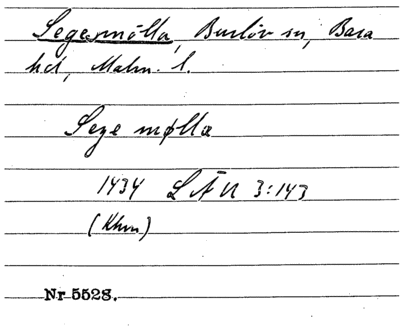 Segesmölla, Burlöv sn, Bara
hd, Malm. l.
Sege mφlla
1434 LÄU 3:143
(Khm)
Nr 5528.